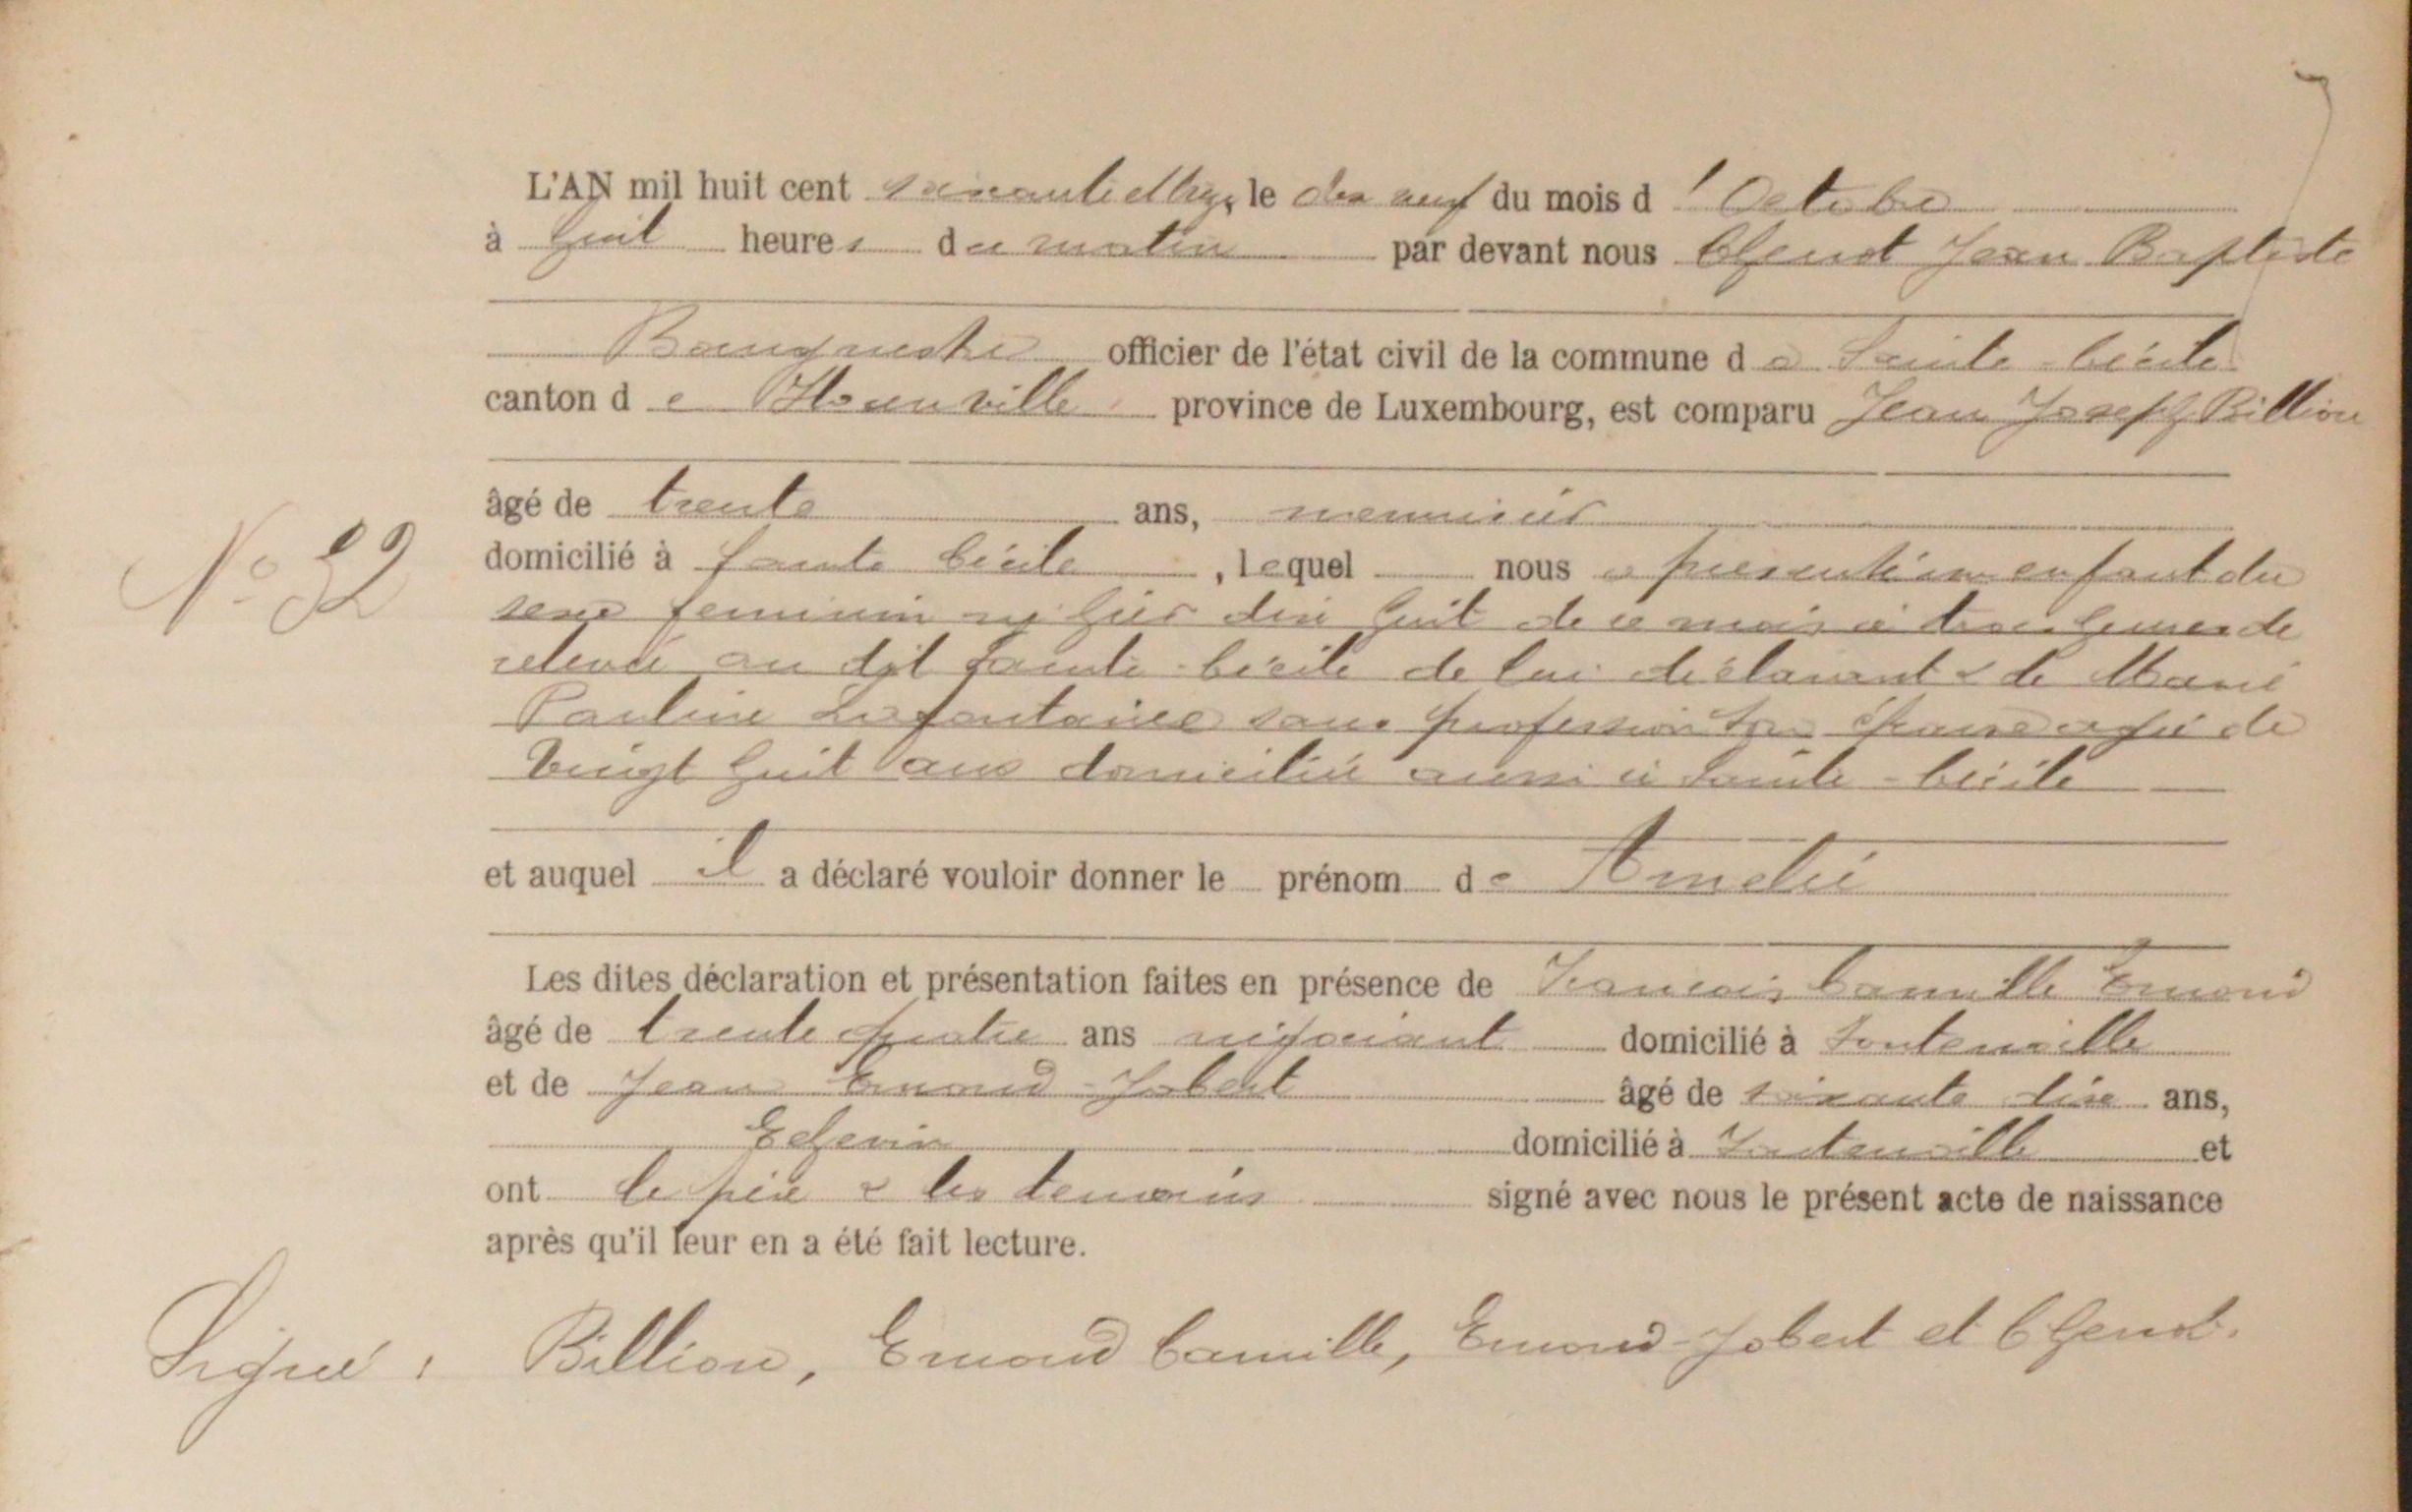 L'AN mil huit cent soixante et treize le dix neuf du mois d'Octobre
à huit heures du matin par devant nous Chenot Jean Baptiste
Bourgmestre officier de l'état civil de la commune de Sainte-Cécile
canton de Florenville province de Luxembourg, est comparu Jean Joseph Billion
âgé de trente ans, menuisier
N° 32
domicilié à Sainte Cécile, lequel nous a présenté un enfant du
sexe feminin né hier dix huit de ce mois à trois heures de
relevée au dit Sainte-Cécile de lui déclarant & de Marie
Pauline Lafontaine sans profession son épouse agée de
vingt huit ans domiciliée aussi à Sainte-Cécile
et auquel il a déclaré vouloir donner le prénom de Amelie
Les dites déclaration et présentation faites en présence de François Camille Emond
âgé de trente quatre ans négociant domicilié à Fontenoille
et de Jean Emond-Jobert âgé de soixante dix ans,
Echevin domicilié à Fontenoille et
ont le père & les temoins signé avec nous le présent acte de naissance
après qu'il leur en a été fait lecture.
Signé : Billion, Emond Camille, Emond-Jobert et Chenot.